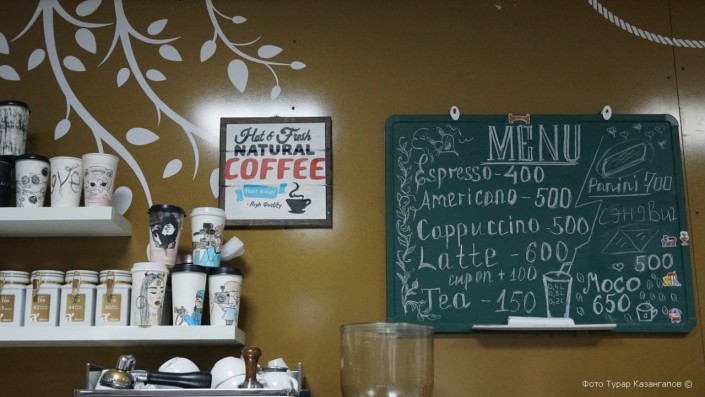 Hot & Fresh
NATURAL
COFFEE
• High Quality
MENU
Espresso-400
Americano-500
Cappuccino-500
Latte-600
сироп +100
Tea-150
Panini 700
500
Moco
650
Фото Турар Казангапов ©